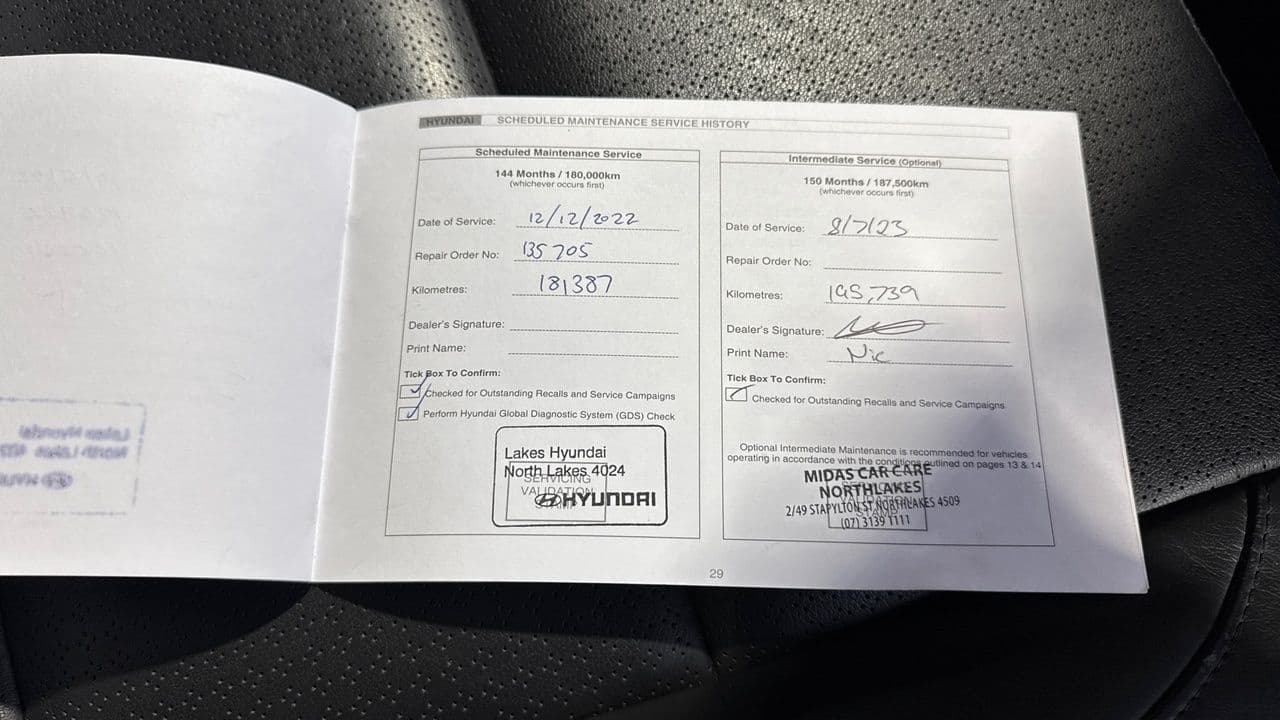 HYUNDAI SCHEDULED MAINTENANCE SERVICE HISTORY
Scheduled Maintenance Service
144 Months / 180,000km
(whichever occurs first)
Date of Service: 12/12/2022
Repair Order No: 135705
Kilometres: 181387
Dealer's Signature:
Print Name:
Tick Box To Confirm:
Checked for Outstanding Recalls and Service Campaigns
Perform Hyundai Global Diagnostic System (GDS) Check
Lakes Hyundai
North Lakes 4024
SERVICING
VALIDATION
STAMP
HYUNDAI
Intermediate Service (Optional)
150 Months / 187,500km
(whichever occurs first)
Date of Service: 8/7/23
Repair Order No:
Kilometres: 195,739
Dealer's Signature:
Print Name: Nic
Tick Box To Confirm:
Checked for Outstanding Recalls and Service Campaigns
Optional Intermediate Maintenance is recommended for vehicles
operating in accordance with the conditions outlined on pages 13 & 14
MIDAS CAR CARE
NORTHLAKES
2/49 STAPYLTON ST, NORTHLAKES 4509
(07) 3139 1111
29